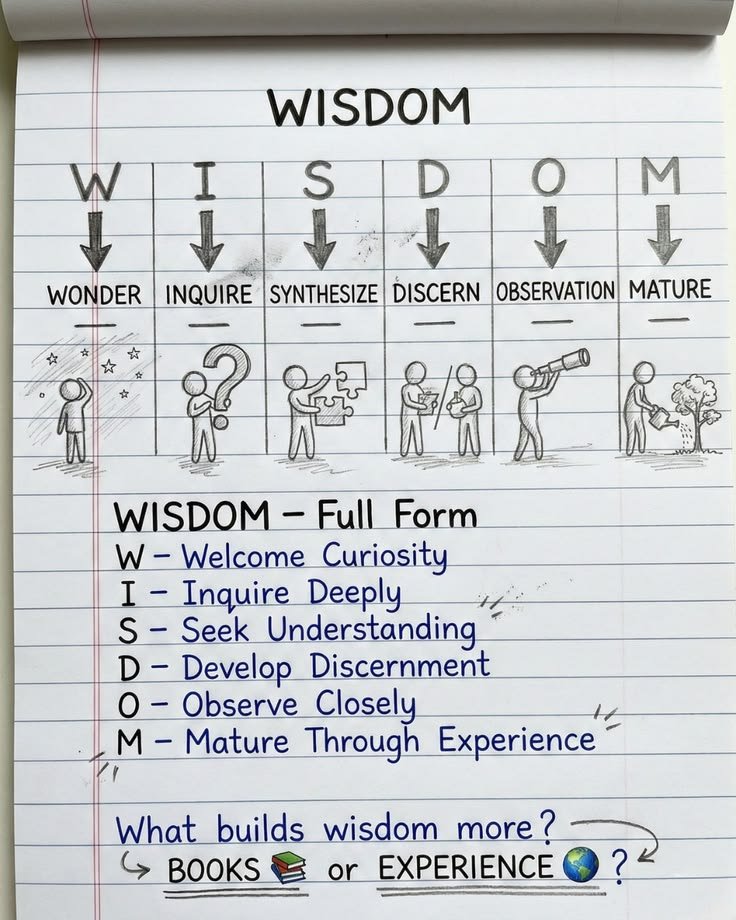 WISDOM
W I S D O M
WONDER INQUIRE SYNTHESIZE DISCERN OBSERVATION MATURE
?
WISDOM – Full Form
W – Welcome Curiosity
I – Inquire Deeply
S – Seek Understanding
D – Develop Discernment
O – Observe Closely
M – Mature Through Experience
What builds wisdom more?
BOOKS 📚 or EXPERIENCE 🌎 ?